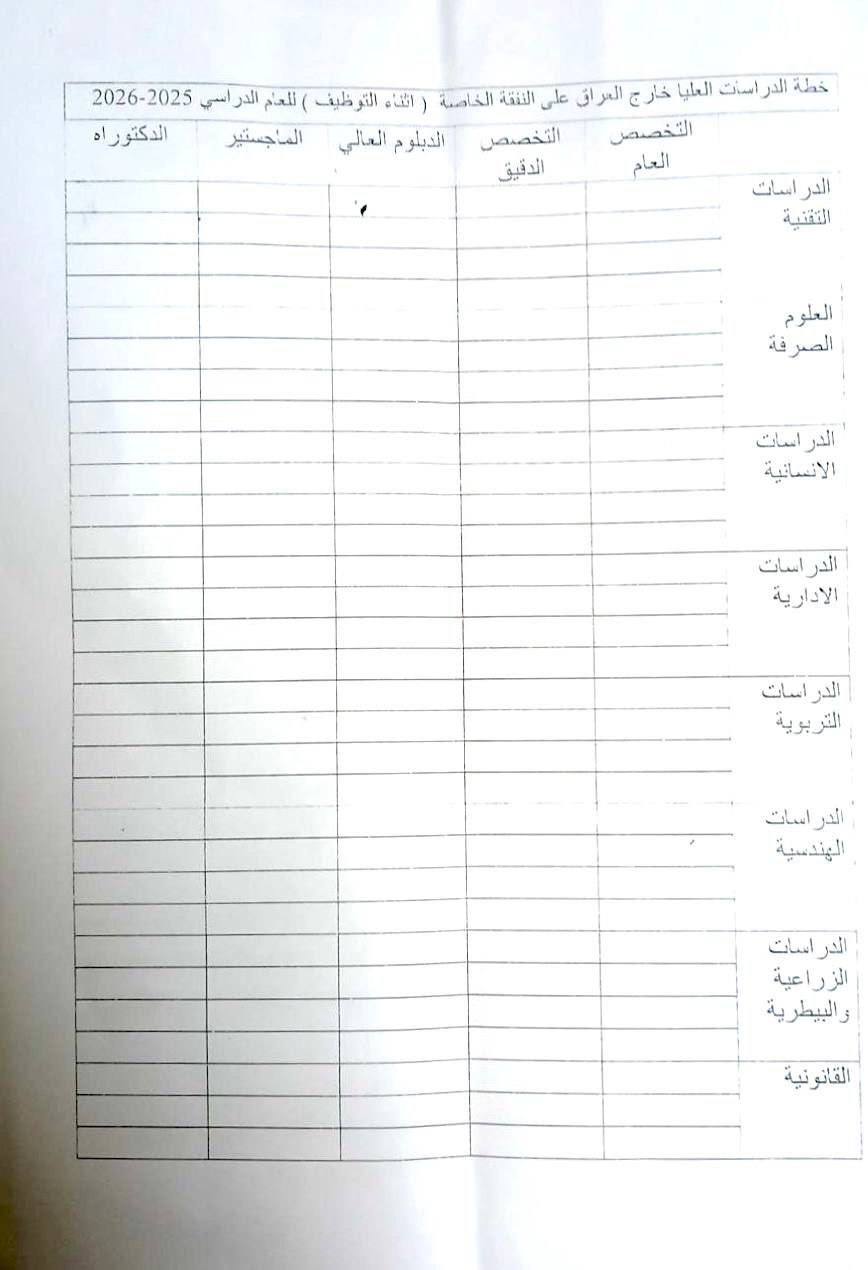 خطة الدراسات العليا خارج العراق على النفقة الخاصة ( اثناء التوظيف ) للعام الدراسي 2025-2026
التخصص العام
التخصص الدقيق
الدبلوم العالي
الماجستير
الدكتوراه
الدراسات
التقنية
العلوم
الصرفة
الدراسات
الانسانية
الدراسات
الادارية
الدراسات
التربوية
الدراسات
الهندسية
الدراسات
الزراعية
والبيطرية
القانونية